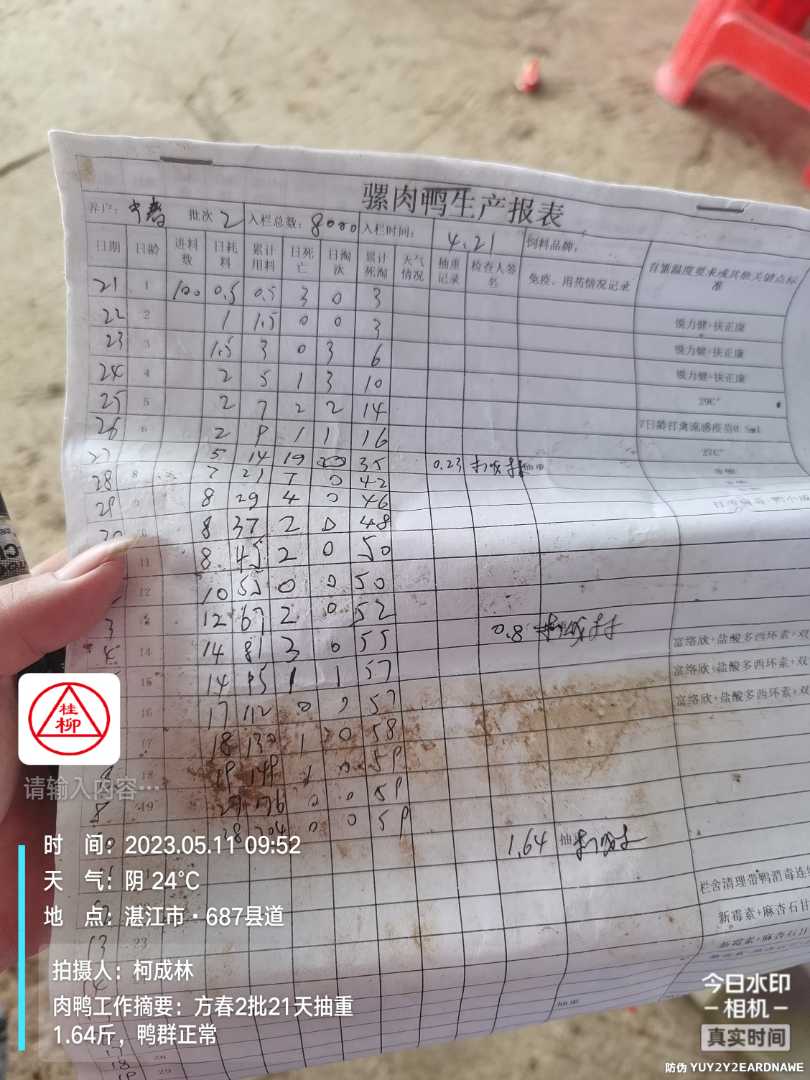 骡肉鸭生产报表
养户: 方春 批次 2 入栏总数: 8000 入栏时间: 4.21 饲料品牌:
日期 日龄 进料数 日耗料 累计用料 日死亡 日淘汰 累计死淘 天气情况 抽重记录 检查人签名 免疫、用药情况记录 育雏温度要求或其他关键点标准
21 1 100 0.5 0.5 3 0 3
22 2 1 1.5 0 0 3 馥力健+扶正康
23 3 1.5 3 0 3 6 馥力健+扶正康
24 4 2 5 1 3 10 馥力健+扶正康
25 5 2 7 2 2 14 29C°
26 6 2 9 1 1 16 7日龄打禽流感疫苗0.5ml
27 5 14 19 0 35 0.23 抽重 27C°
28 8 7 21 7 0 42
29 9 8 29 4 0 46
30 10 8 37 2 0 48
11 8 45 2 0 50
12 10 55 0 0 50
3 13 12 67 2 0 52
4 14 14 81 3 0 55 0.8 富络欣+盐酸多西环素+双
15 14 95 1 1 57 富络欣+盐酸多西环素+双
16 17 112 0 0 57 富络欣+盐酸多西环素+双
17 18 130 1 0 58
18 19 149 1 0 59
8 19 27 176 0 0 59
28 204 0 0 59 1.64
栏舍清理带鸭消毒连
新霉素+麻杏石甘
13 23 新霉素+麻杏石甘
14
抽重
17
18 28
19 29
桂柳
请输入内容…
时 间: 2023.05.11 09:52
天 气: 阴 24℃
地 点: 湛江市·687县道
拍摄人: 柯成林
肉鸭工作摘要: 方春2批21天抽重
1.64斤，鸭群正常
今日水印
-相机-
真实时间
防伪 YUY2Y2EARDNAWE